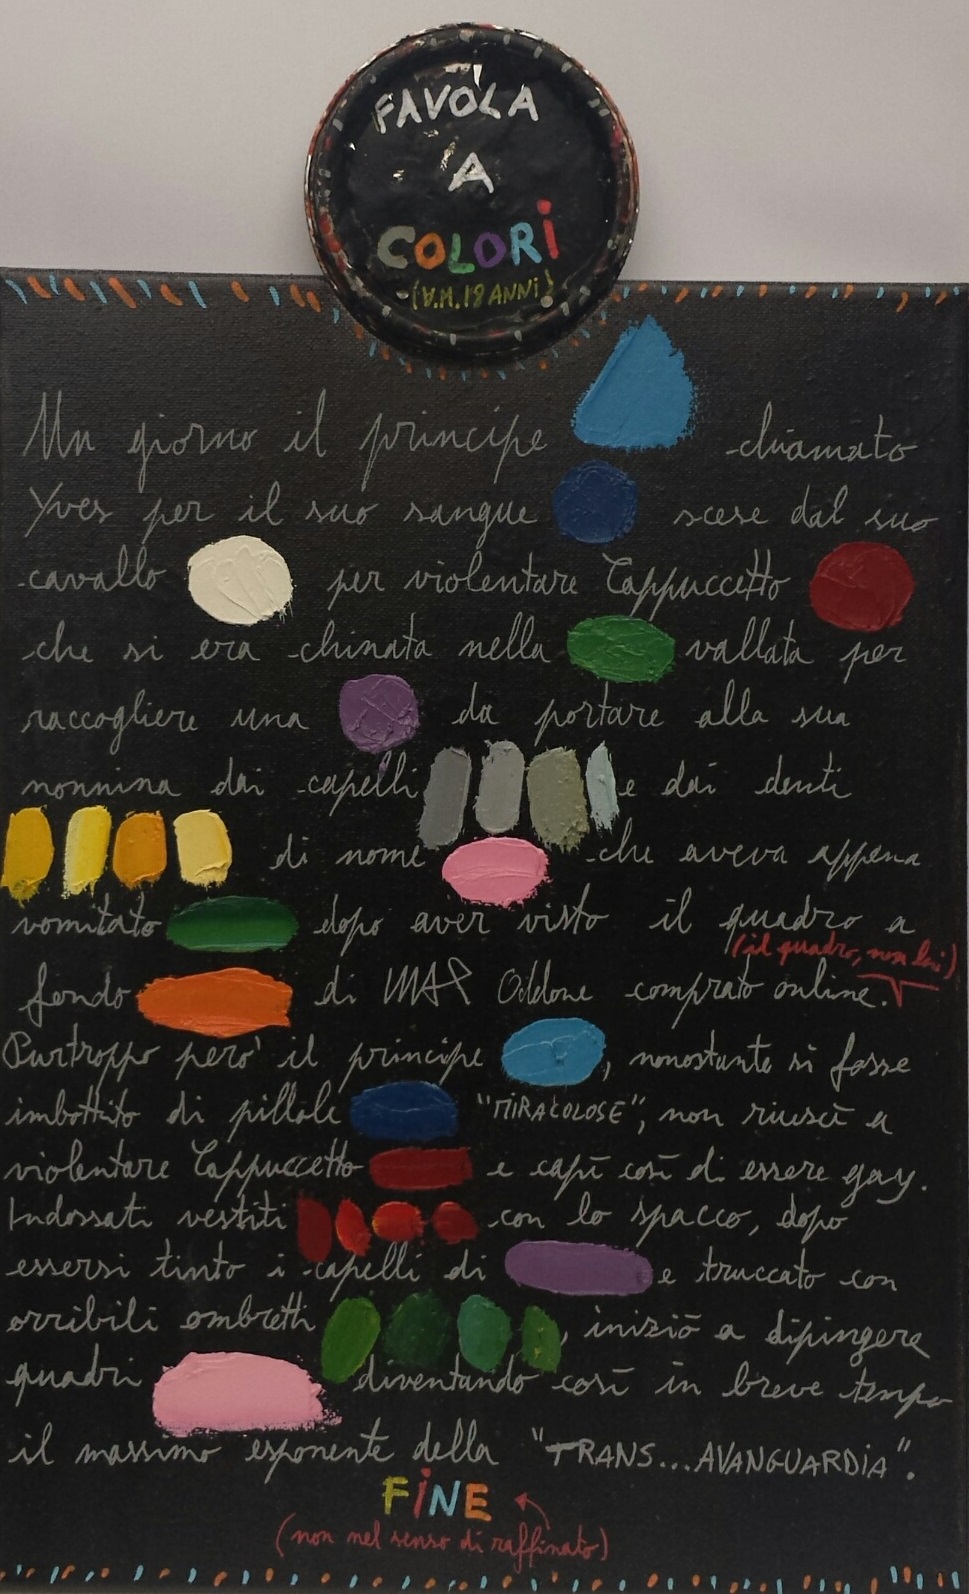 FAVOLA
A
COLORI
(V.M. 18 ANNI)
Un giorno il principe chiamato
Yves per il suo sangue scese dal suo
cavallo per violentare Cappuccetto
che si era chinata nella vallata per
raccogliere una da portare alla sua
nonnina dai capelli e dai denti
di nome che aveva appena
vomitato dopo aver visto il quadro a
(il quadro, non lei)
fondo di Oddone comprato online.
Purtroppo però il principe , nonostante si fosse
imbottito di pillole "MIRACOLOSE", non riuscì a
violentare Cappuccetto e capì così di essere gay.
Indossati vestiti con lo spacco, dopo
essersi tinto i capelli di e truccato con
orribili ombretti , iniziò a dipingere
quadri diventando così in breve tempo
il massimo esponente della "TRANS...AVANGUARDIA".
FINE
(non nel senso di raffinato)